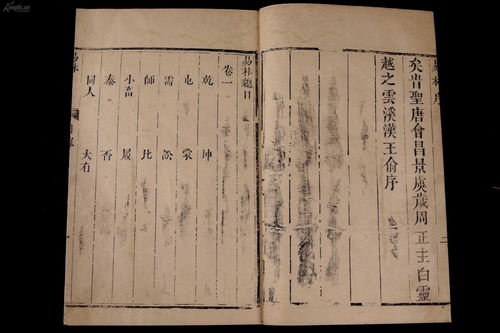 易林序
二
矣旹聖唐會昌景虞歲周正主白靈
越之雲溪漢王俞序
易林總目
卷一
乾 坤
屯 蒙
需 訟
師 比
小畜 履
泰 否
同人 大有
易林